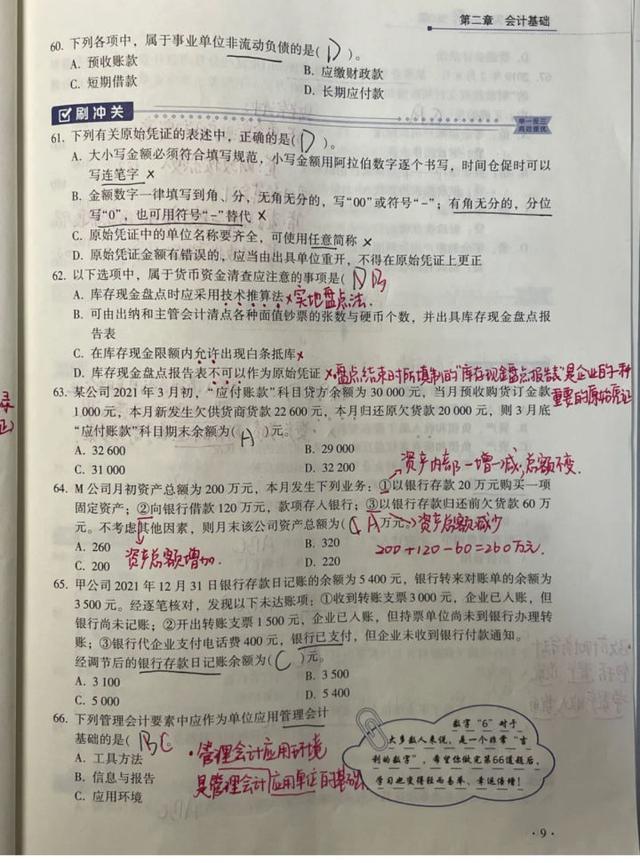 第二章 会计基础
60. 下列各项中，属于事业单位非流动负债的是( D )。
A. 预收账款
B. 应缴财政款
C. 短期借款
D. 长期应付款
刷冲关
举一反三
高效提优
61. 下列有关原始凭证的表述中，正确的是( D )。
A. 大小写金额必须符合填写规范，小写金额用阿拉伯数字逐个书写，时间仓促时可以
写连笔字 ×
B. 金额数字一律填写到角、分，无角无分的，写“00”或符号“-”；有角无分的，分位
写“0”，也可用符号“-”替代 ×
C. 原始凭证中的单位名称要齐全，可使用任意简称 ×
D. 原始凭证金额有错误的，应当由出具单位重开，不得在原始凭证上更正
62. 以下选项中，属于货币资金清查应注意的事项是( D B
A. 库存现金盘点时应采用技术推算法 × 实地盘点法.
B. 可由出纳和主管会计清点各种面值钞票的张数与硬币个数，并出具库存现金盘点报
告表
C. 在库存现金限额内允许出现白条抵库 ×
D. 库存现金盘点报告表不可以作为原始凭证 × 盘点结束时所填制的“库存现金盘点报告表”是企业的一种
重要的原始凭证
63. 某公司 2021 年 3 月初，“应付账款”科目贷方余额为 30 000 元，当月预收购货订金款
1 000 元，本月新发生欠供货商货款 22 600 元，本月归还原欠货款 20 000 元，则 3 月底
“应付账款”科目期末余额为( A )元。
A. 32 600
B. 29 000
C. 31 000
D. 32 200
资产内部一增一减，总额不变.
64. M 公司月初资产总额为 200 万元，本月发生下列业务：①以银行存款 20 万元购买一项
固定资产；②向银行借款 120 万元，款项存入银行；③以银行存款归还前欠货款 60 万
元。不考虑其他因素，则月末该公司资产总额为( A 万元。 资产总额减少
A. 260
B. 320
资产总额增加.
200+120-60=260万元.
C. 200
D. 220
65. 甲公司 2021 年 12 月 31 日银行存款日记账的余额为 5 400 元，银行转来对账单的余额为
3 500 元。经逐笔核对，发现以下未达账项：①收到转账支票 3 000 元，企业已入账，但
银行尚未记账；②开出转账支票 1 500 元，企业已入账，但持票单位尚未到银行办理转
账；③银行代企业支付电话费 400 元，银行已支付，但企业未收到银行付款通知。
经调节后的银行存款日记账余额为( C )元。
A. 3 100
B. 3 500
C. 5 000
D. 5 400
66. 下列管理会计要素中应作为单位应用管理会计
基础的是( B C
A. 工具方法
B. 信息与报告
C. 应用环境
管理会计应用环境
是管理会计应用单位的基础
数字“6”对于
大多数人来说，是一个非常“吉
利的数字”，希望你做完第66道题后，
学习也变得轻而易举、幸运倍增！
· 9 ·